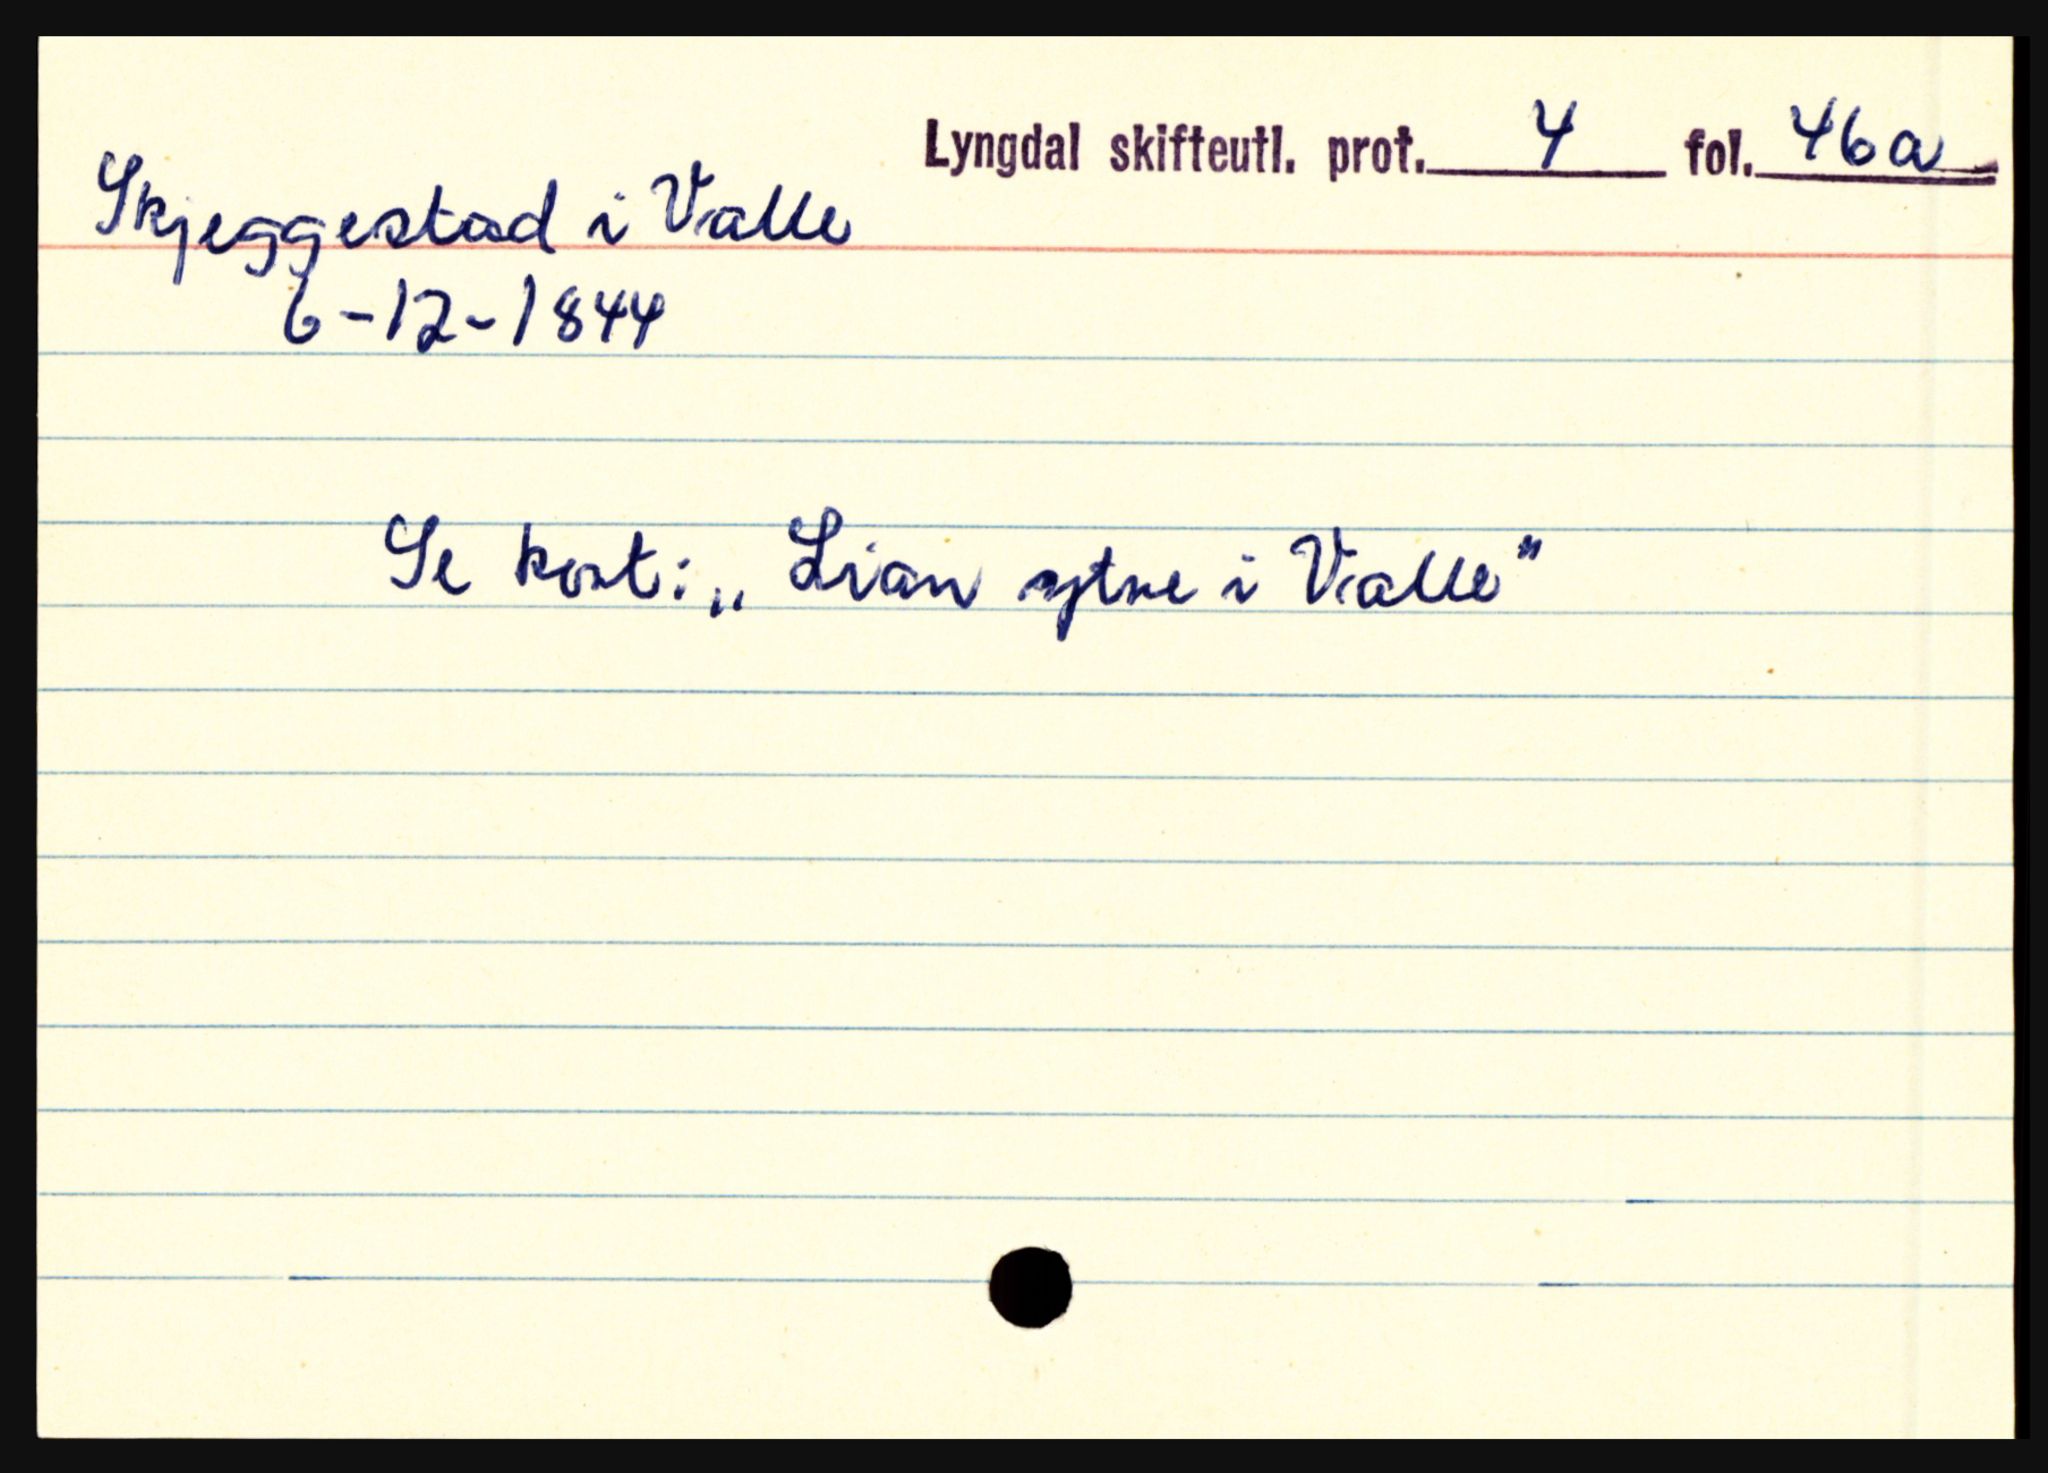 Lyngdal skifteutl. prot. 4 fol. 46a
Skjeggestad i Valle
6-12-1844
Se kort: „Lian ytre i Valle"